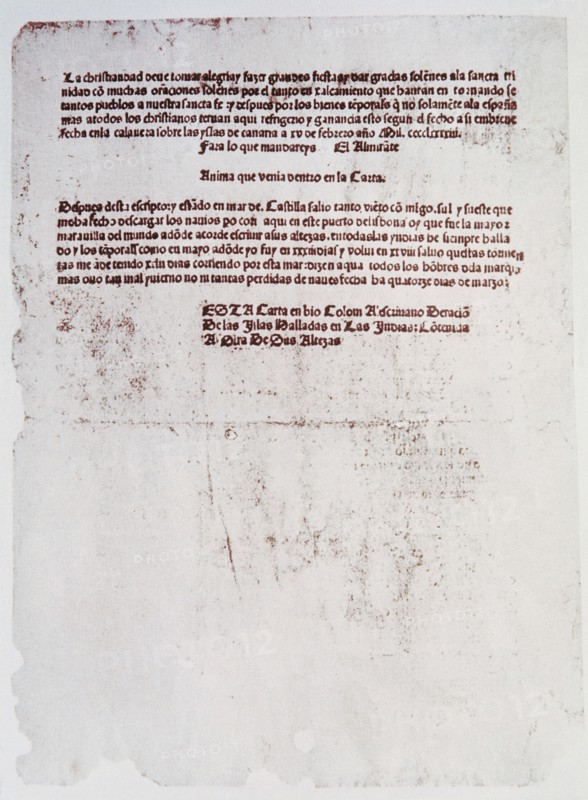 La christiandad deue tomar alegria y fazer grandes fiestas y dar gracias solẽnes ala sancta tri
nidad cõ muchas oraciones solẽnes por el tanto en xalçamiento que hauran en tornando se
tantos pueblos a nuestra sancta fe y despues por los bienes tẽporales q̃ no solamẽte ala españa
mas atodos los christianos ternan aqui refrigerio y ganancia esto segun el fecho a si embreue
Fecha enla calauera sobre las yslas de canaria a xv de febrero año Mil. cccclxxxxiii.
Fara lo que mandareys El Almirãte
Anima que venia dentro en la Carta.
Despues desta escripto: y estãdo en mar de. Castilla salio tanto viẽto cõ migo. sul y sueste que
me ha fecho descargar los nauios po cori aqui en este puerto de lisbona oy que fue la mayor
marauilla del mundo adõde acorde escriuir asus altezas. en todas las yndias he siempre halla
do y los tẽporales como en mayo adõde yo fuy en xxxiii dias y volui en xxviii saluo questas tormen
tas me ãde tenido xiiii dias corriendo por esta mar: dizen aqua todos los hõbres dela mar q̃
mas ouo tan mal yuierno no ni tantas perdidas de naues fecha ha quatorze dias de março:
ESTA Carta en bio Colom A'escriuano Deraciõ
De las Islas Halladas en Las Indias: Cõtenida
A' Otra De Sus Altezas